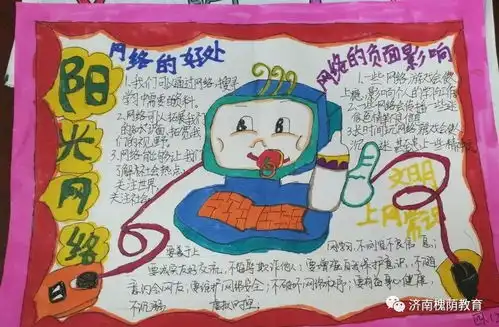 阳光网络
网络的好处
1.我们可以通过网络搜寻
学习需要的资料。
2.网络可以拓展我
们的视野。
3.网络能够让我们
了解社会热点,
关注世界,
关注社会。
网络的负面影响
1.一些网络游戏会使
上瘾,影响个人的学习工作
2.一些网络会传播一些迷
信色情等信息
3.长时间玩网络游戏会使人
文明
上网常识
要善于上网学习,不浏览不良信息;
要诚实友好交流,不侮辱欺诈他人;要增强自我保护意识,不随
意约会网友;要维护网络安全;不破坏网络秩序;要有益身心健康,
不沉溺虚拟时空。
济南槐荫教育